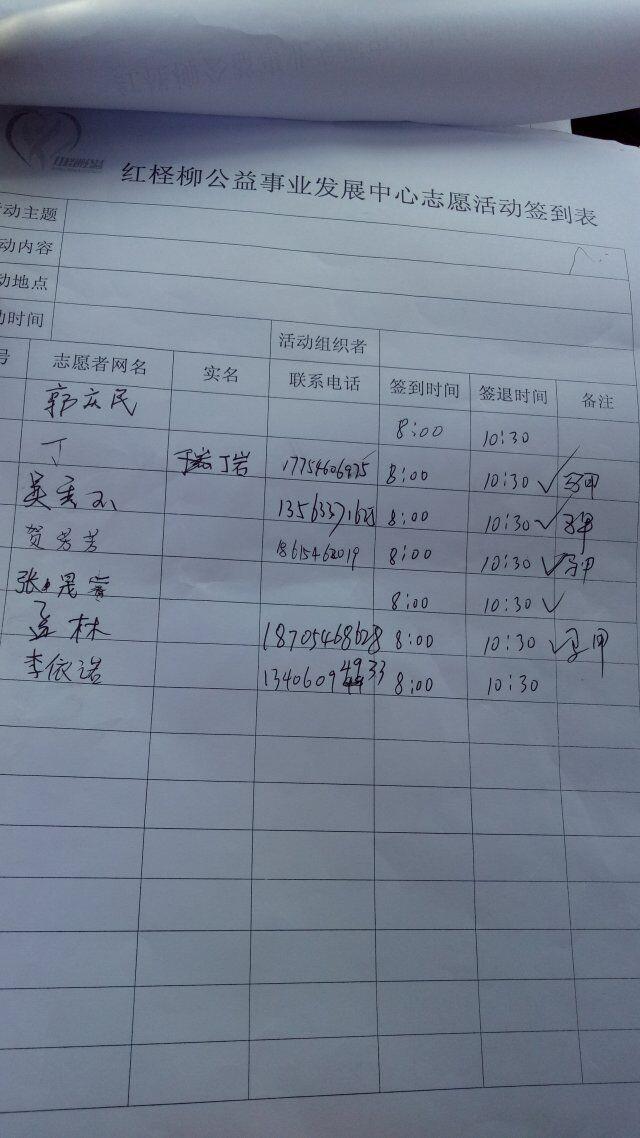 红柽柳公益事业发展中心志愿活动签到表
动主题
动内容
动地点
动时间 活动组织者
号 志愿者网名 实名 联系电话 签到时间 签退时间 备注
郭庆民 8:00 10:30
丁 丁岩 8:00 10:30 ✓ 马甲
8:00 10:30 ✓ 马甲
贺芳芳 18615462019 8:00 10:30 ✓ 马甲
张 晟 8:00 10:30 ✓
孟林 18705468628 8:00 10:30 ✓ 马甲
李依诺 13406094933 8:00 10:30